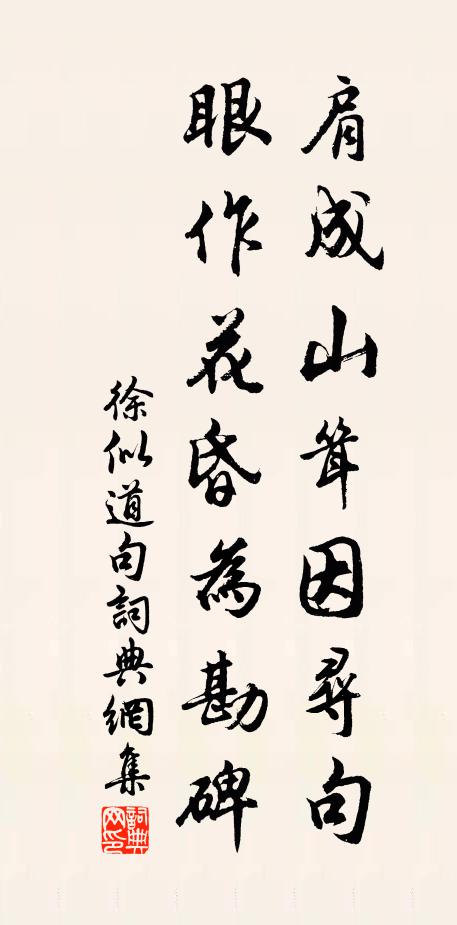 肩成山耸因尋句
眼作花昏為勘碑
徐似道句詞典網集
詞典網印